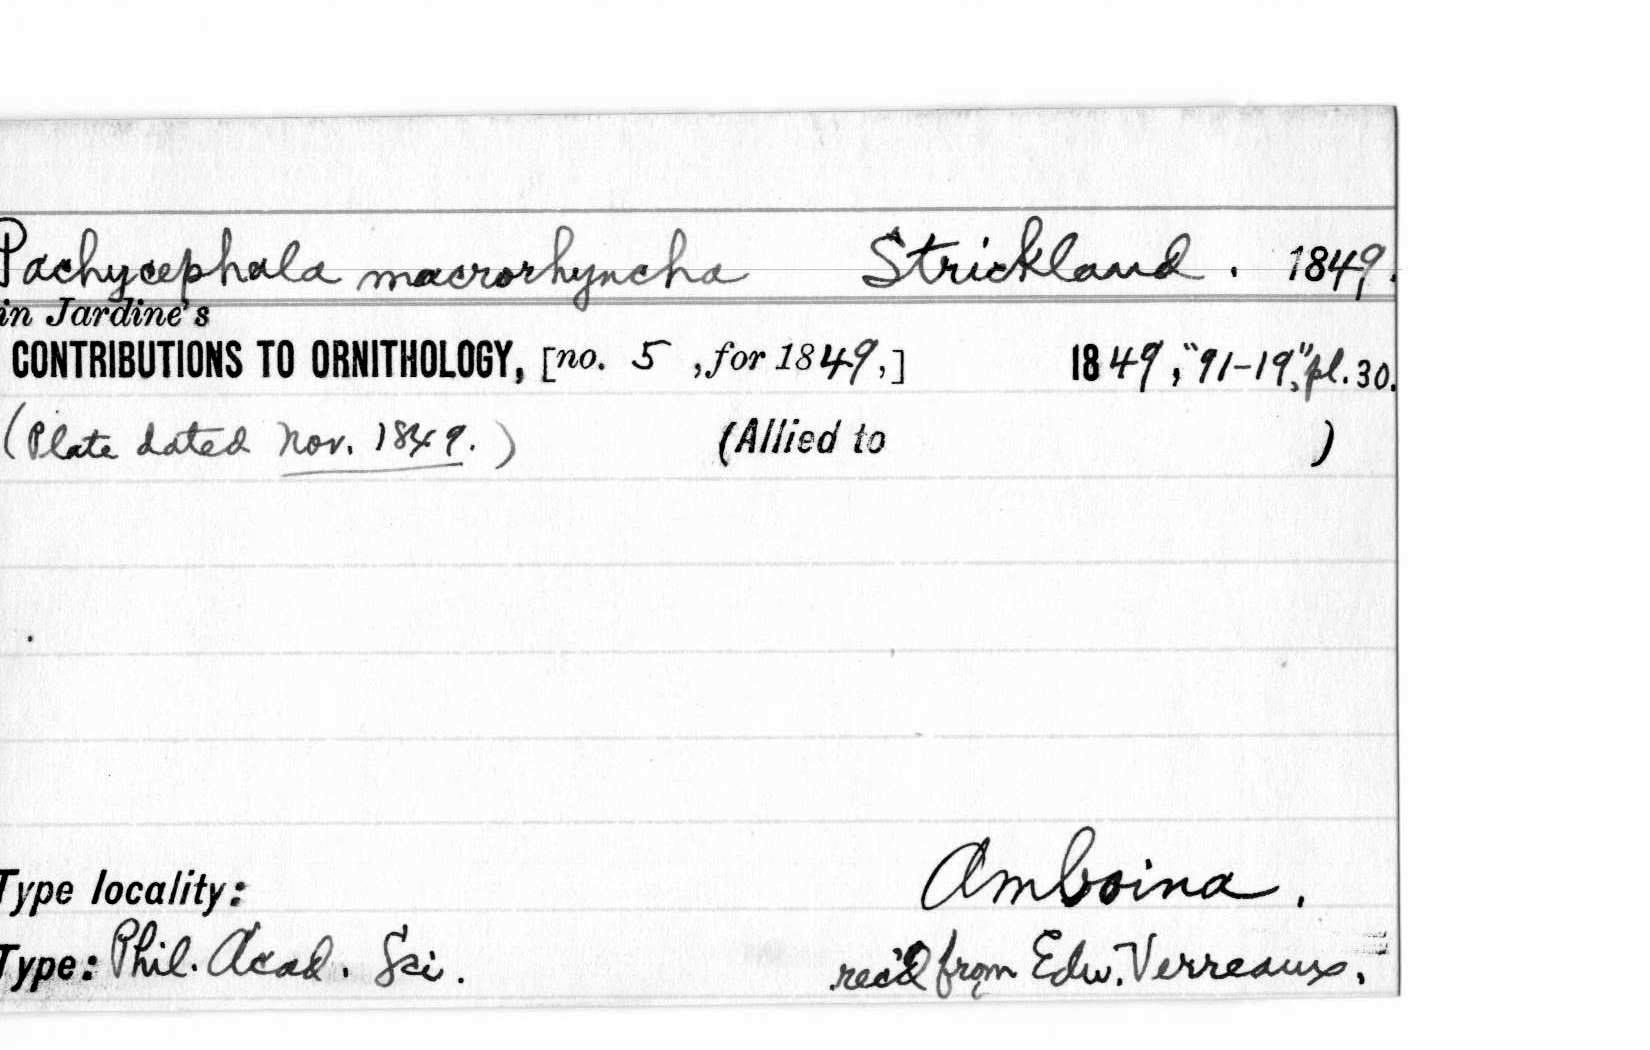 Pachycephala macrorhyncha Strickland. 1849.
in Jardine's
CONTRIBUTIONS TO ORNITHOLOGY, [no. 5, for 1849,] 1849, "91-19," pl. 30.
(Plate dated Nov. 1849.) (Allied to )
Type locality: Amboina.
Type: Phil. Acad. Sci. rec'd from Edw. Verreaux.